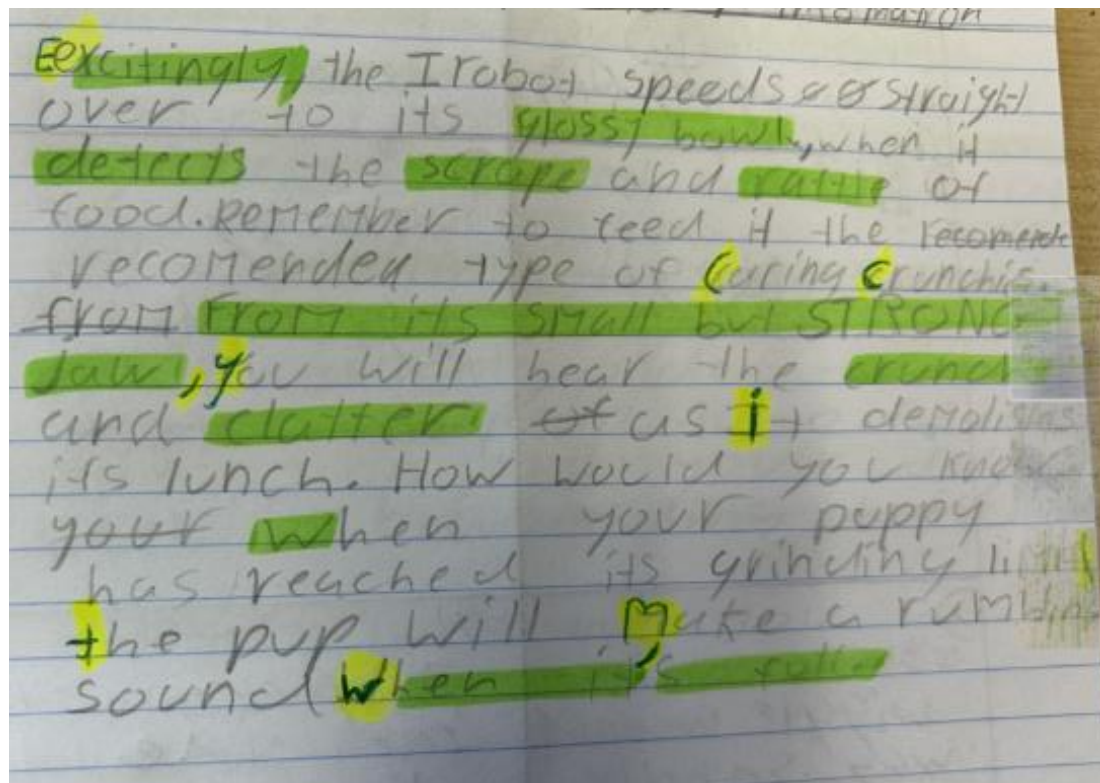 information
Eexcitingly, the Irobot speeds straight
over to its glossy bowl, when it
detects the scrape and rattle of
food. Remember to feed it the recomende
recomended type of Caring Crunchies.
from From its small but STRONG
Jaw, you will hear the crunch
and clatter of as it demolishes
its lunch. How would you know
your when your puppy
has reached its grinding limit,
the pup will Make a rumbling
sound when it's full.